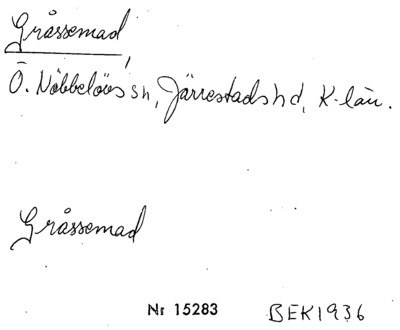 Gråssemad,
Ö. Nöbbelövs sn, Järrestads hd, K-län.
Gråssemad
Nr 15283 BEK1936